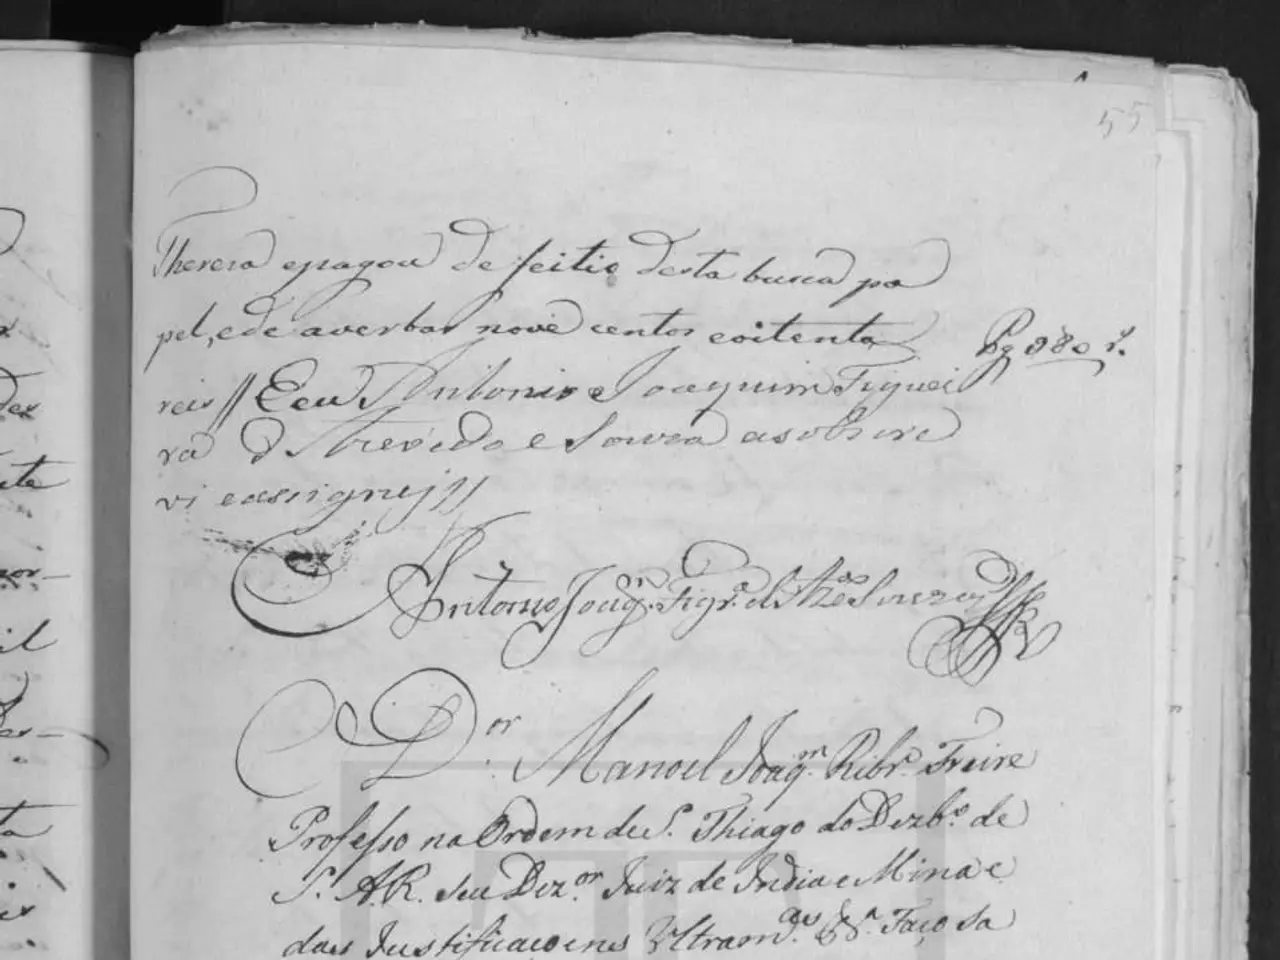 55
Thereza epagou de feitio desta busca pa
pel, ede averbar nove centos eoitenta
Pg 980 r.^s
reis // Eeu Antonio Joaquim Figuei
ra d Azevedo e Souza asobscre
vi eassignej //
Antonio Joaq.^m Figr.^a d Az.^do Souza
D.^or Manoel Joaq.^m Ribr.^o Freire
Professo na Ordem de S. Thiago do Dezb.^o de
S. A R. seu Dez.^or Juiz de India e Mina e
das Justificaçoens Ultram.^as &.^a Faço sa